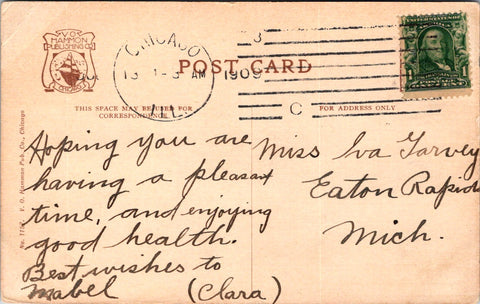 V.O.
HAMMON
PUBLISHING CO.
CHICAGO
CHICAGO
1-3 AM 1909
ILL.
3
C
POST CARD
UNITED STATES OF AMERICA
1
THIS SPACE MAY BE USED FOR
CORRESPONDENCE
FOR ADDRESS ONLY
V. O. Hammon Pub. Co., Chicago
Hoping you are
having a pleasant
time, and enjoying
good health.
Best wishes to
Mabel (Clara)
Miss Iva Garvey
Eaton Rapids
Mich.